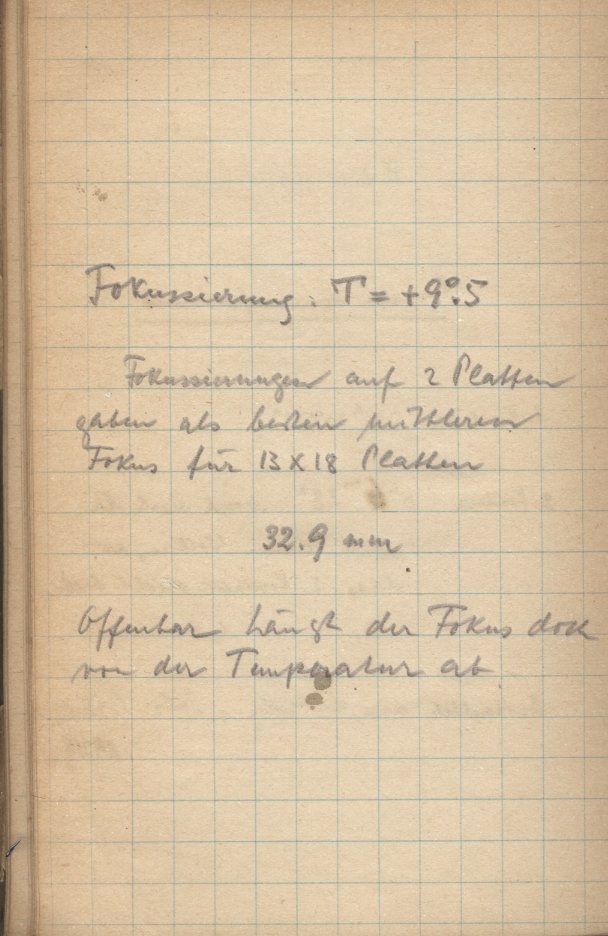 Fokussierung: T = +9°.5
Fokussierungen auf 2 Platten
gaben als besten mittleren
Fokus für 13 X 18 Platten
32.9 mm
Offenbar hängt der Fokus doch
von der Temperatur ab